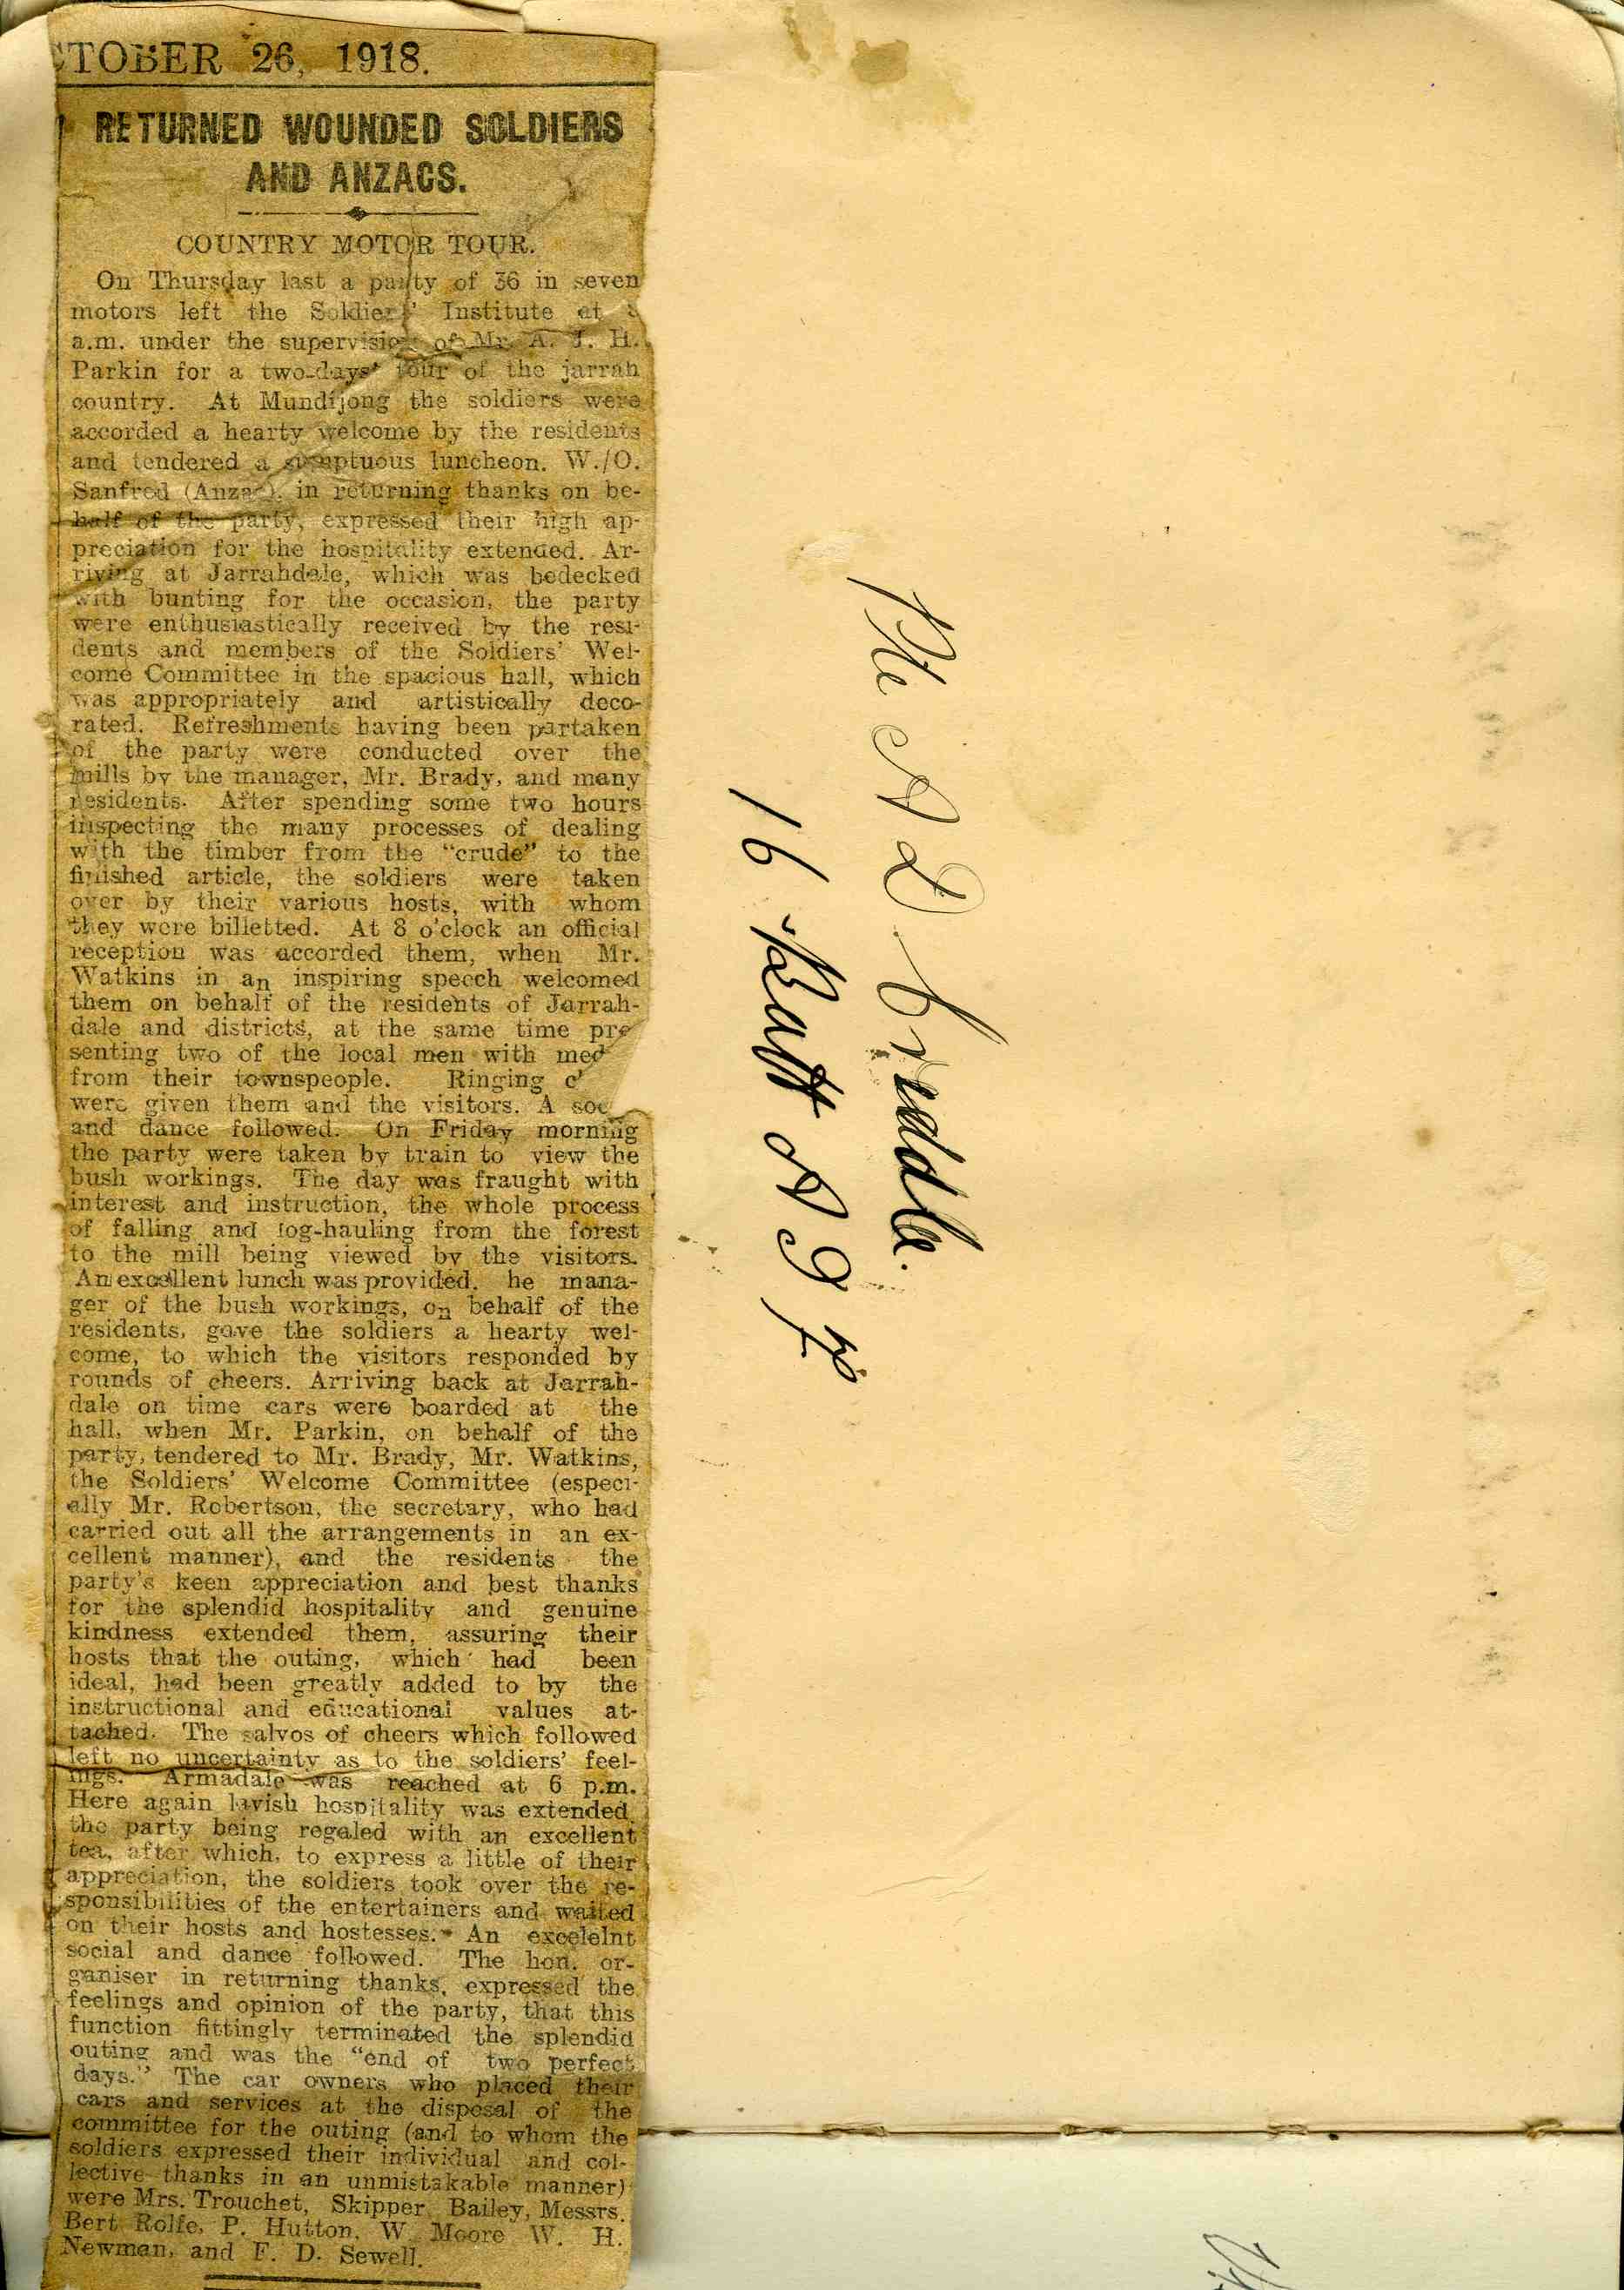 CTOBER 26, 1918.
RETURNED WOUNDED SOLDIERS
AND ANZACS.
COUNTRY MOTOR TOUR.
On Thursday last a party of 36 in seven
motors left the Soldiers' Institute at
a.m. under the supervision of Mr. A. J. H.
Parkin for a two-days' tour of the jarrah
country. At Mundijong the soldiers were
accorded a hearty welcome by the residents
and tendered a sumptuous luncheon. W./O.
Sanfred (Anzac), in returning thanks on be-
half of the party, expressed their high ap-
preciation for the hospitality extended. Ar-
riving at Jarrahdale, which was bedecked
with bunting for the occasion, the party
were enthusiastically received by the resi-
dents and members of the Soldiers' Wel-
come Committee in the spacious hall, which
was appropriately and artistically deco-
rated. Refreshments having been partaken
of the party were conducted over the
mills by the manager, Mr. Brady, and many
residents. After spending some two hours
inspecting the many processes of dealing
with the timber from the "crude" to the
finished article, the soldiers were taken
over by their various hosts, with whom
they were billetted. At 8 o'clock an official
reception was accorded them, when Mr.
Watkins in an inspiring speech welcomed
them on behalf of the residents of Jarrah-
dale and districts, at the same time pre
senting two of the local men with med
from their townspeople. Ringing c
were given them and the visitors. A soc
and dance followed. On Friday morning
the party were taken by train to view the
bush workings. The day was fraught with
interest and instruction, the whole process
of falling and log-hauling from the forest
to the mill being viewed by the visitors.
An excellent lunch was provided. he mana-
ger of the bush workings, on behalf of the
residents, gave the soldiers a hearty wel-
come, to which the visitors responded by
rounds of cheers. Arriving back at Jarrah-
dale on time cars were boarded at the
hall, when Mr. Parkin, on behalf of the
party, tendered to Mr. Brady, Mr. Watkins,
the Soldiers' Welcome Committee (especi-
ally Mr. Robertson, the secretary, who had
carried out all the arrangements in an ex-
cellent manner), and the residents the
party's keen appreciation and best thanks
for the splendid hospitality and genuine
kindness extended them, assuring their
hosts that the outing, which had been
ideal, had been greatly added to by the
instructional and educational values at-
tached. The salvos of cheers which followed
left no uncertainty as to the soldiers' feel-
ings. Armadale was reached at 6 p.m.
Here again lavish hospitality was extended
the party being regaled with an excellent
tea, after which, to express a little of their
appreciation, the soldiers took over the re-
sponsibilities of the entertainers and waited
on their hosts and hostesses. An excelelnt
social and dance followed. The hon. or-
ganiser in returning thanks, expressed the
feelings and opinion of the party, that this
function fittingly terminated the splendid
outing and was the "end of two perfect
days." The car owners who placed their
cars and services at the disposal of the
committee for the outing (and to whom the
soldiers expressed their individual and col-
lective thanks in an unmistakable manner)
were Mrs. Trouchet, Skipper, Bailey, Messrs.
Bert Rolfe, P. Hutton, W. Moore W. H.
Newman, and F. D. Sewell.
Pte A D Cruddle.
16 Batt A I F